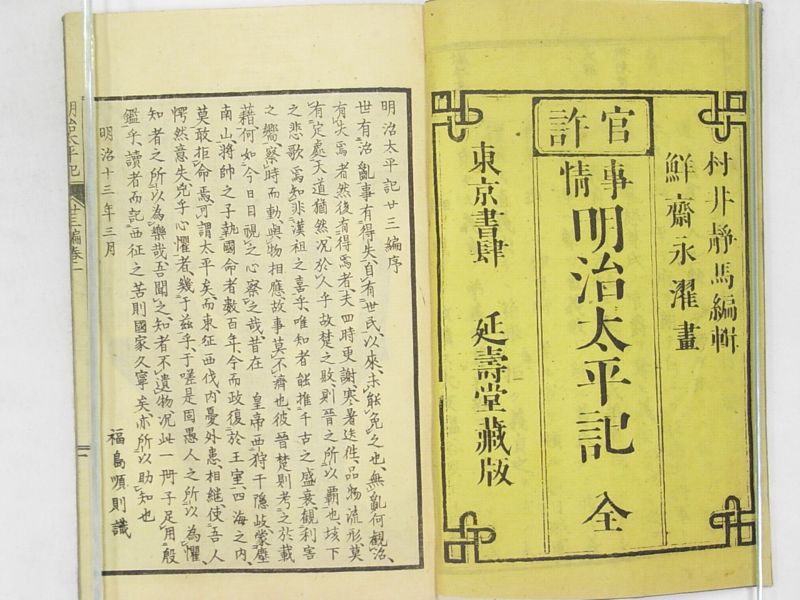 村井靜馬編輯
鮮齋永濯畫
官許
事情
明治太平記 全
東京書肆 延壽堂藏版
明治太平記廿三編序
世有治亂事有得失自有世民以來未能免之也無亂何觀治
有失焉者然後有得焉者夫四時更謝寒暑迭往品物流形莫
有定處天道猶然况於人乎故楚之敗則晉之所以覇也垓下
之悲歌焉知非漢祖之喜乎唯知者能推千古之盛衰觀利害
之嚮察時而動與物相應故事莫不濟也彼晉楚則考之於載
藉何如今日目視之心察之哉昔在 皇帝西狩千隱岐蒙塵
南山將帥之子執國命者數百年今而政復於王室四海之內
莫敢拒命焉可謂太平矣而東征西伐內憂外患相繼使吾人
愕然意失兇乎心懼者幾于茲乎于嗟是固愚人之所以為懼
知者之所以為樂哉吾聞之知者不遺物况此一冊子足用殷
鑑乎讀者而記西征之苦則國家久寧矣亦所以助知也
明治十三年三月
福島順則識
明治太平記 廿三編卷一